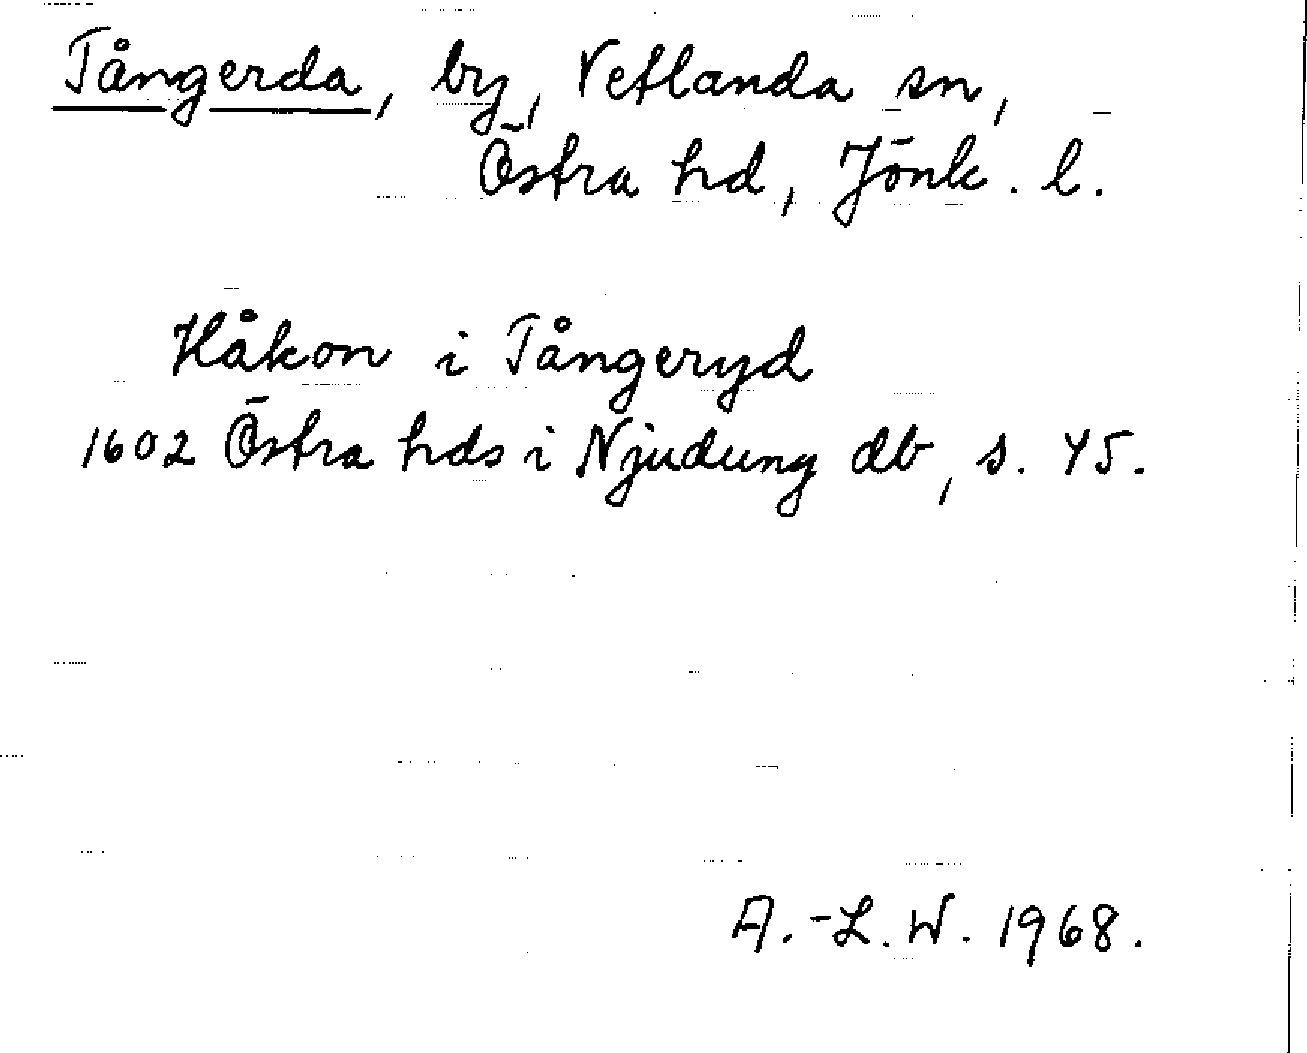 Tångerda, by, Vetlanda sn,
Östra hd, Jönk. l.
Håkon i Tångeryd
1602 Östra hds i Njudung db, s. 45.
A.-L. W. 1968.